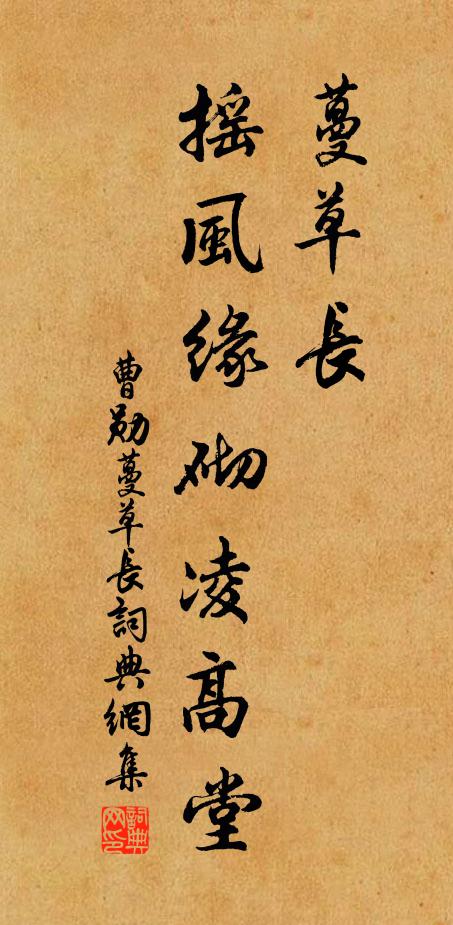 蔓草長
搖風緣砌凌高堂
曹勛蔓草長詞典網集
詞典网印